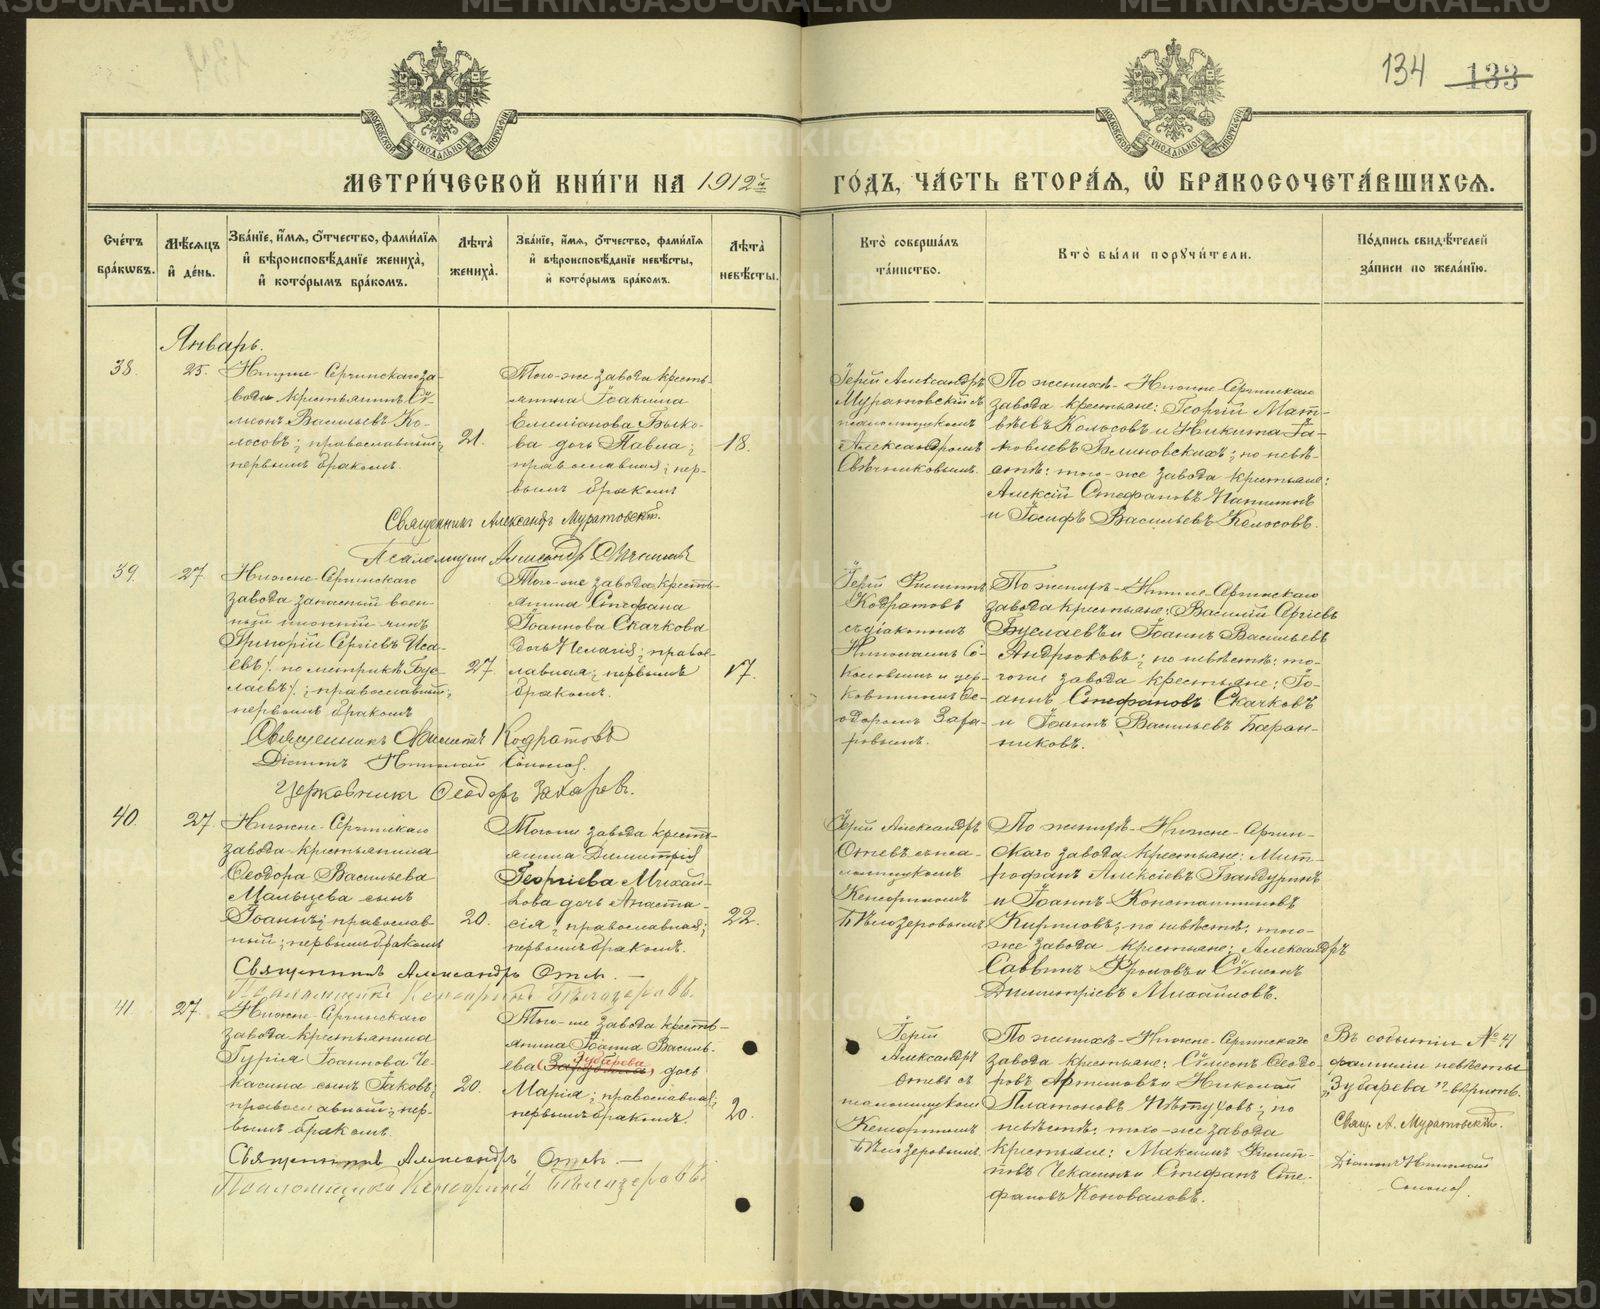 134 133
МОСКОВСКОЙ СѴНОДАЛЬНОЙ ТИПОГРАФІИ
МОСКОВСКОЙ СѴНОДАЛЬНОЙ ТИПОГРАФІИ
МЕТРИ́ЧЕСКОЙ КНИ́ГИ НА 1912й
ГО́ДЪ, ЧА́СТЬ ВТОРА́Я, Ѡ҆ БРАКОСОЧЕТА́ВШИХСЯ.
Сче́тъ
бра́ковъ.
Мѣ́сяцъ
и҆ де́нь.
Зва́нїе, и҆́мя, ѻ҆́тчество, фамі́лїя
и҆ вѣроисповѣ́данїе жениха̀,
и҆ кото́рымъ бра́комъ.
Лѣ́та
жениха̀.
Зва́нїе, и҆́мя, ѻ҆́тчество, фамі́лїя
и҆ вѣроисповѣ́данїе невѣ́сты,
и҆ кото́рымъ бра́комъ.
Лѣ́та
невѣ́сты.
Кто̀ соверша́лъ
та́инство.
Кто̀ бы́ли порꙋчи́тели.
По́дпись свидѣ́телей
за́писи по жела́нїю.
Январь.
38.
25.
Нижне-Сергинскаго за-
вода крестьянинъ Сѵ-
меонъ Васильевъ Ко-
лосовъ; православный;
первымъ бракомъ.
21.
Того-же завода кресть-
янина Іоакима
Емеліанова Быко-
ва дочь Павла;
православная; пер-
вымъ бракомъ
18.
Іерей Александръ
Муратовскій съ
псаломщикомъ
Александромъ
Свѣчниковымъ.
По женихѣ - Нижне-Сергинскаго
завода крестьяне: Георгій Мат-
вѣевъ Колосовъ и Никита Іа-
ковлевъ Блиновскихъ; по невѣ-
стѣ: того-же завода крестьяне:
Алексій Стефановъ
и Іосифъ Васильевъ Колосовъ.
Священникъ Александръ Муратовскій.
Псаломщикъ Александръ Свѣчниковъ
39.
27.
Нижне-Сергинскаго
завода запасный воен-
ный нижній чинъ
Григорій Сергіевъ Иса-
евъ/ по метрикѣ Бус-
лаевъ/; православный;
первымъ бракомъ
27.
Того-же завода кресть-
янина Стефана
Іоаннова Скачкова
дочь Пелагія; правос-
лавная; первымъ
бракомъ.
17.
Іерей Филиппъ
Кодратовъ
съ діакономъ
Николаемъ Со-
коловымъ и цер-
ковникомъ Ѳе-
одоромъ Заха-
ровымъ.
По женихѣ - Нижне-Сергинскаго
завода крестьяне: Василій Сергіевъ
Буслаевъ и Іоаннъ Васильевъ
Андрюковъ; по невѣстѣ: то-
гоже завода крестьяне: Іо-
аннъ Стефановъ Скачковъ
и Іоаннъ Васильевъ Баран-
никовъ.
Священникъ Филиппъ Кодратовъ
Діаконъ Николай Соколов.
Церковникъ Ѳеодоръ Захаровъ.
40.
27.
Нижне-Сергинскаго
завода крестьянина
Ѳеодора Васильева
Мальцева сынъ
Іоаннъ; православ-
ный; первымъ бракомъ
20.
Тогоже завода кресть-
янина Димитрія
Георгіева Михай-
лова дочь Анаста-
сія; православная;
первымъ бракомъ.
22.
Іерей Александръ
Отевъ съ пса-
ломщикомъ
Ксенофонтомъ
Бѣлозеровымъ
По женихѣ - Нижне-Сергин-
скаго завода крестьяне: Мит-
рофанъ Алексіевъ Бандуринъ
и Іоаннъ Константиновъ
Кириловъ; по невѣстѣ: того-
же завода крестьяне: Александръ
Саввинъ Фроловъ и Сѵмеонъ
Димитріевъ Михайловъ.
Священникъ Александръ Отев. —
Псаломщикъ Ксенофонтъ Бѣлозеровъ.
41.
27.
Нижне-Сергинскаго
завода крестьянина
Гурія Іоаннова Че-
касина сынъ Іаковъ;
православный; пер-
вымъ бракомъ.
20.
Того-же завода кресть-
янина Іоанна Василь-
Зубарева
ева дочь
Марія; православная;
первымъ бракомъ.
20.
Іерей
Александръ
Отевъ съ
псаломщикомъ
Ксенофонтомъ
Бѣлозеровымъ.
По женихѣ - Нижне-Сергинскаго
завода крестьяне: Сѵмеонъ Ѳеодо-
ровъ Артемовъ и Николай
Платоновъ Пѣтуховъ; по
невѣстѣ: того-же завода
крестьяне: Максимъ Филип-
повъ Чекасинъ и Стефанъ Сте-
фановъ Коноваловъ.
Въ событіи № 41
фамиліи невѣсты
„Зубарева“ - вѣрить.
Свящ. А. Муратовскій.
Діаконъ Николай
Соколов.
Священникъ Александръ Отев. —
Псаломщикъ Ксенофонтъ Бѣлозеровъ
METRIKI.GASO-URAL.RU